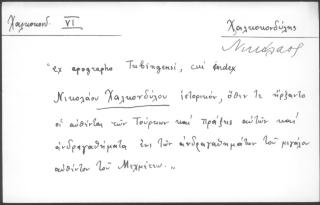 Χαλκοκονδ. VI
Χαλκοκονδύλης
Νικόλαος
"ex apographo Tubingensi, cui index
Νικολάου Χαλκονδύλου ἱστορικόν, ὅθεν τε ἤρξαντο
οἱ αὐθένται τῶν Τούρκων καὶ πράξεις αὐτῶν καὶ
ἀνδραγαθήματα ἕως τῶν ἀνδραγαθημάτων τοῦ μεγάλου
αὐθέντου τοῦ Μεχμέτου.„